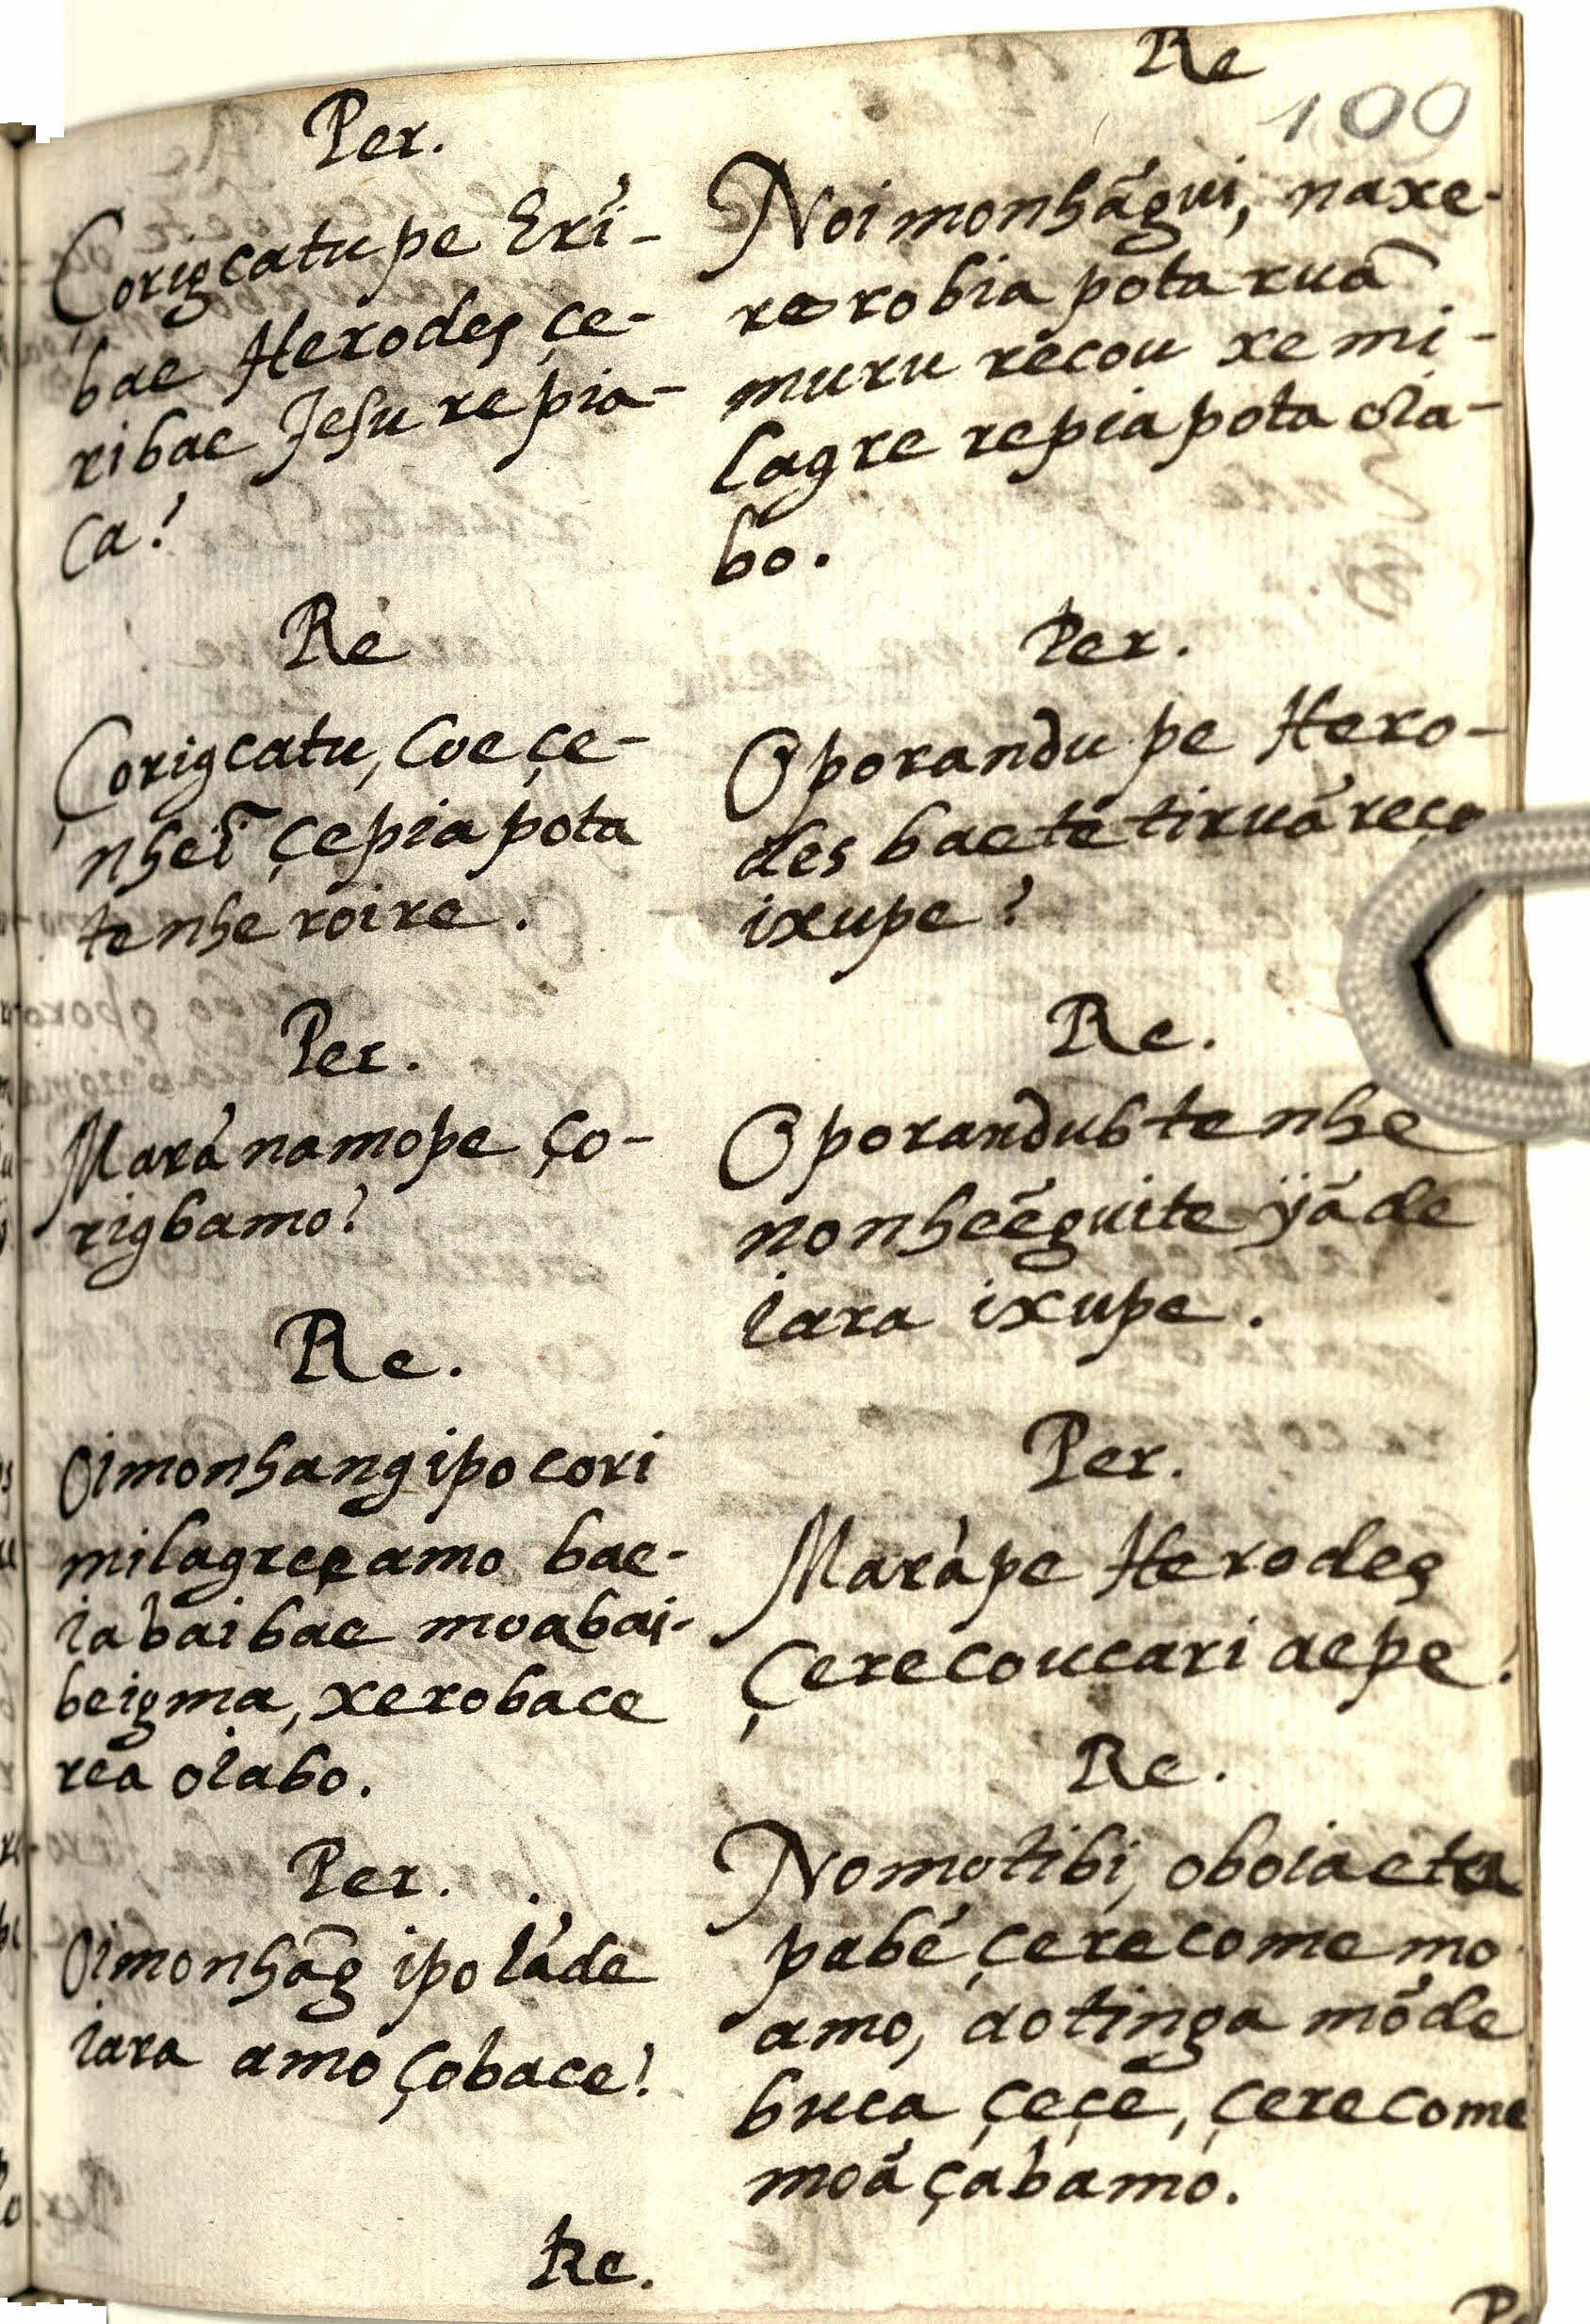 Per.
Çorigcatupe Eri-
bae Herodes çe-
ribae Jesu repia-
ca?
Re
Çorigcatu, Coeçe-
nheĩ çepiapota
tenheroire.
Per.
Marãnamope ço-
rigbamo?
Re.
Oimonhangipo cori
milagreçamo bae-
iabaibae moabai-
beigma, xerobace
reã oiabo.
Per.
Oimonhãg ipo iãde
iara amo çobace?
Re.
Re
100
Noimonhãgui, naxe-
rerobia potaruã
muru recou xe mi-
lagre repiapota oia-
bo.
Per.
Oporandupe Hero-
des baetètiruã
ixupe?
Re.
Oporandubtenhe
nonheẽguite ÿãde
iara ixupe.
Per.
Maràpe Herodes
Çerecoucari aepe?
Re.
Nomotibi, oboiaeta
pabẽ çerecomemo
amo, aotinga mõde
buca çeçe, çerecome
moãçabamo.